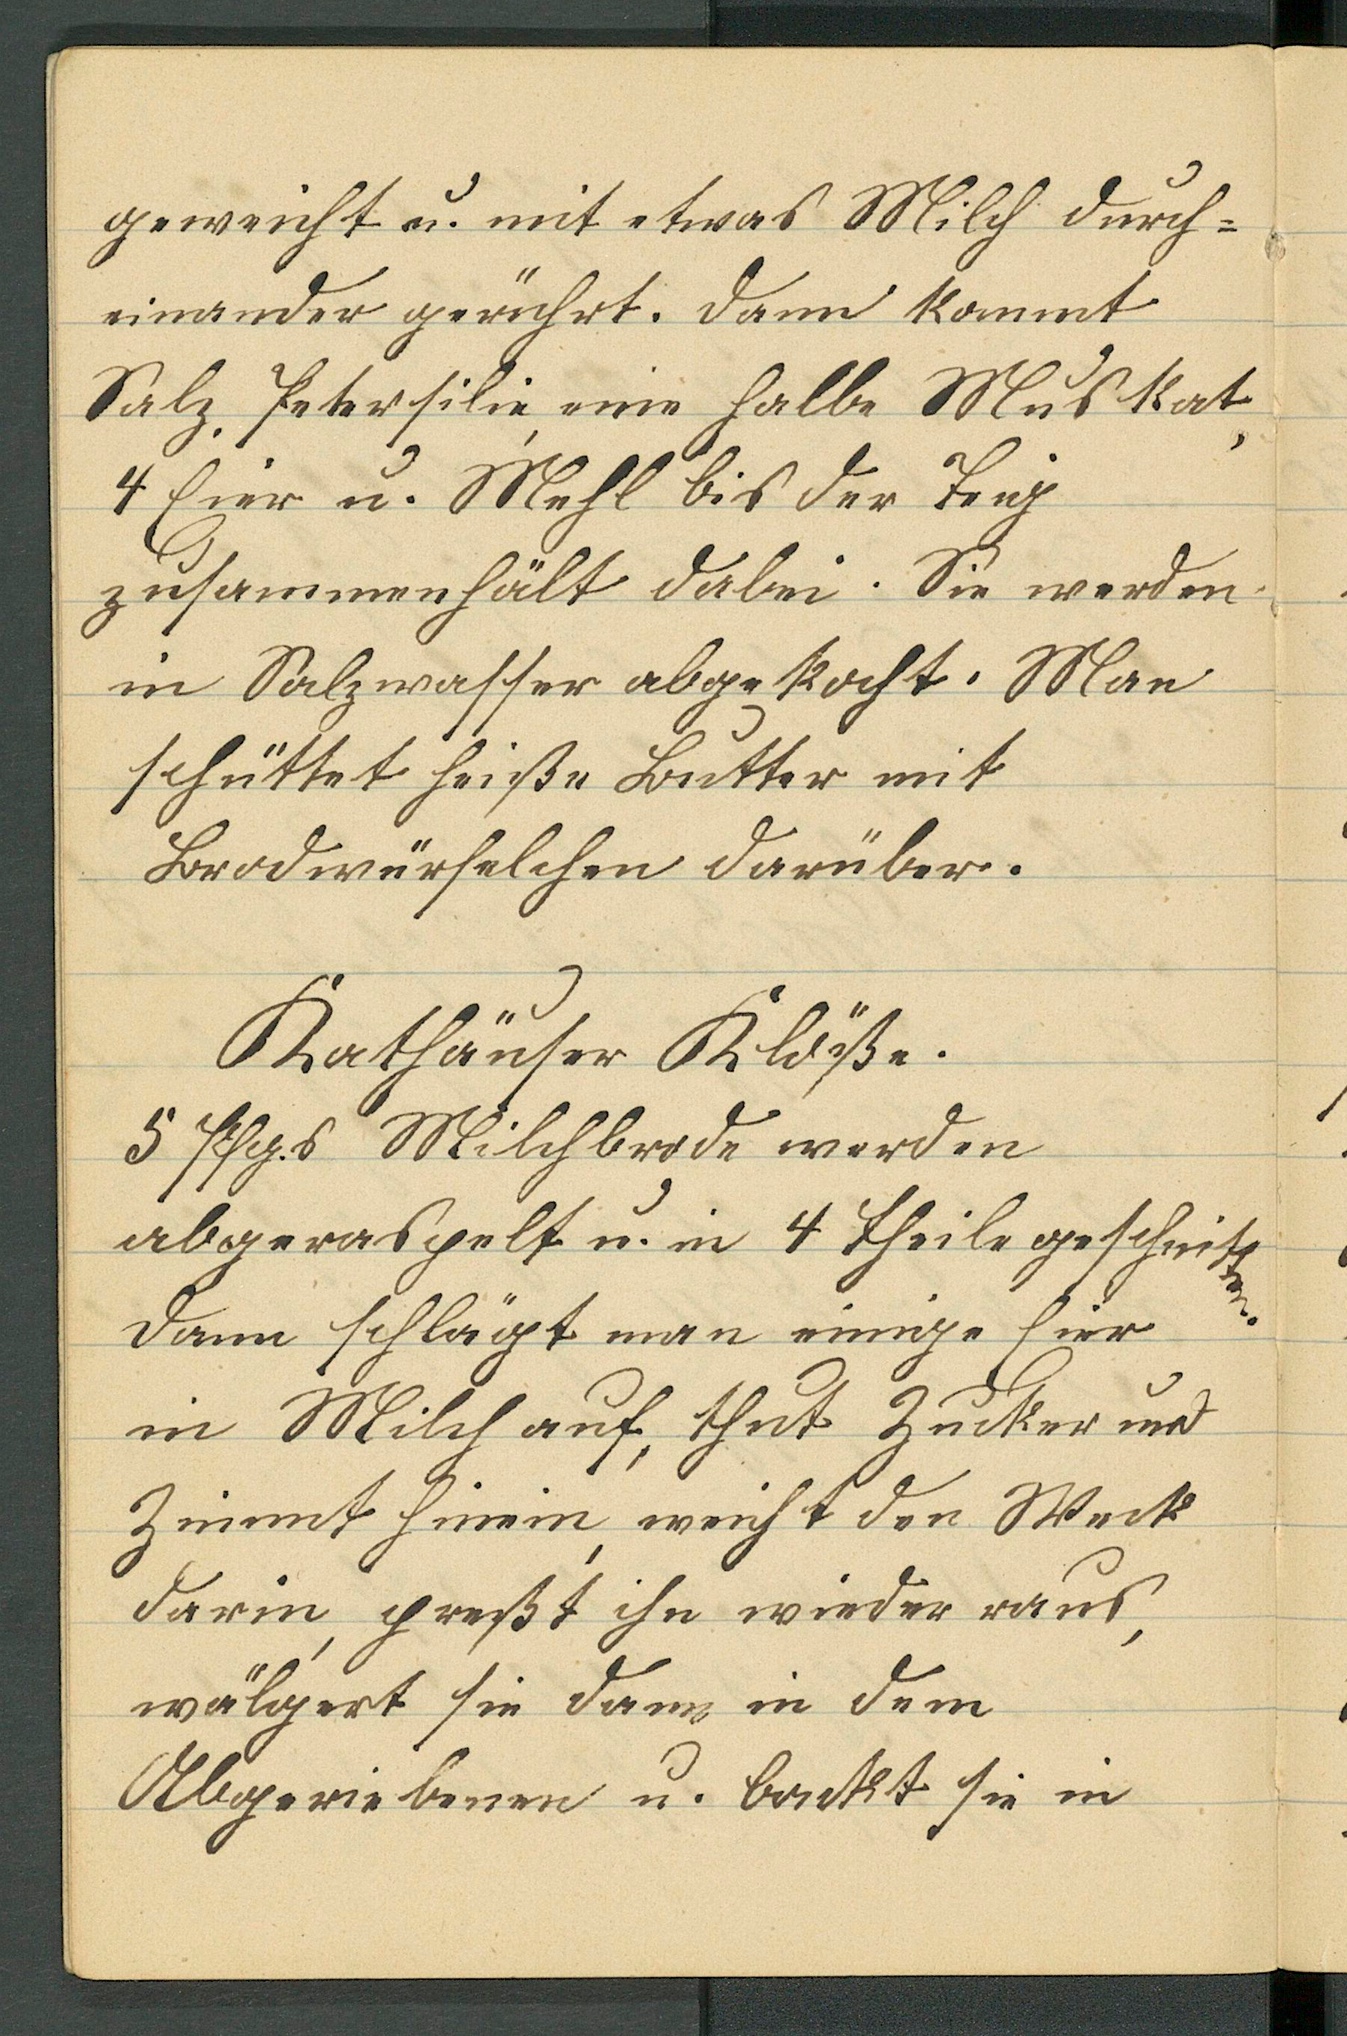 geweicht u. mit etwas Milch durch=
einander gerührt. Dann kommt
Salz, Petersilie, eine halbe Muskat,
4 Eier u. Mehl bis der Teig
zusammenhält dabei. Sie werden
in Salzwasser abgekocht. Man
schüttet heiße Butter mit
Brodwürfelchen darüber.
Kathäuser Klöße.
5 Pfg.s Milchbrode werden
abgeraspelt u. in 4 Theile geschnitten.
Dann schlägt man einige Eier
in Milch auf, thut Zucker und
Zimmt hinein, weicht den Weck
darin, preßt ihn wieder raus,
wälgert sie dann in dem
Abgeriebenen u. backt sie in